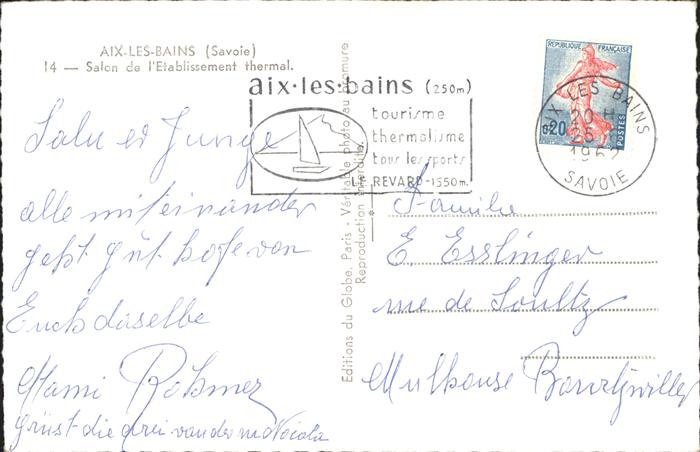 AIX-LES-BAINS (Savoie)
14 — Salon de l'Etablissement thermal.
aix·les·bains (250m)
tourisme
thermalisme
tous les sports
LE REVARD-1550m.
REPUBLIQUE FRANÇAISE
0,20
POSTES
AIX LES BAINS
20 H
25
1962
SAVOIE
Editions du Globe, Paris - Véritable photo au bromure
Reproduction interdite.
Salu er Junge
alle miteinander
geht gut hofe von
Euch daselbe
Mami Rohmer
grüst die drei van der
Familie
E. Esslinger
rue de Soultz
Mulhouse Bourtzwiller